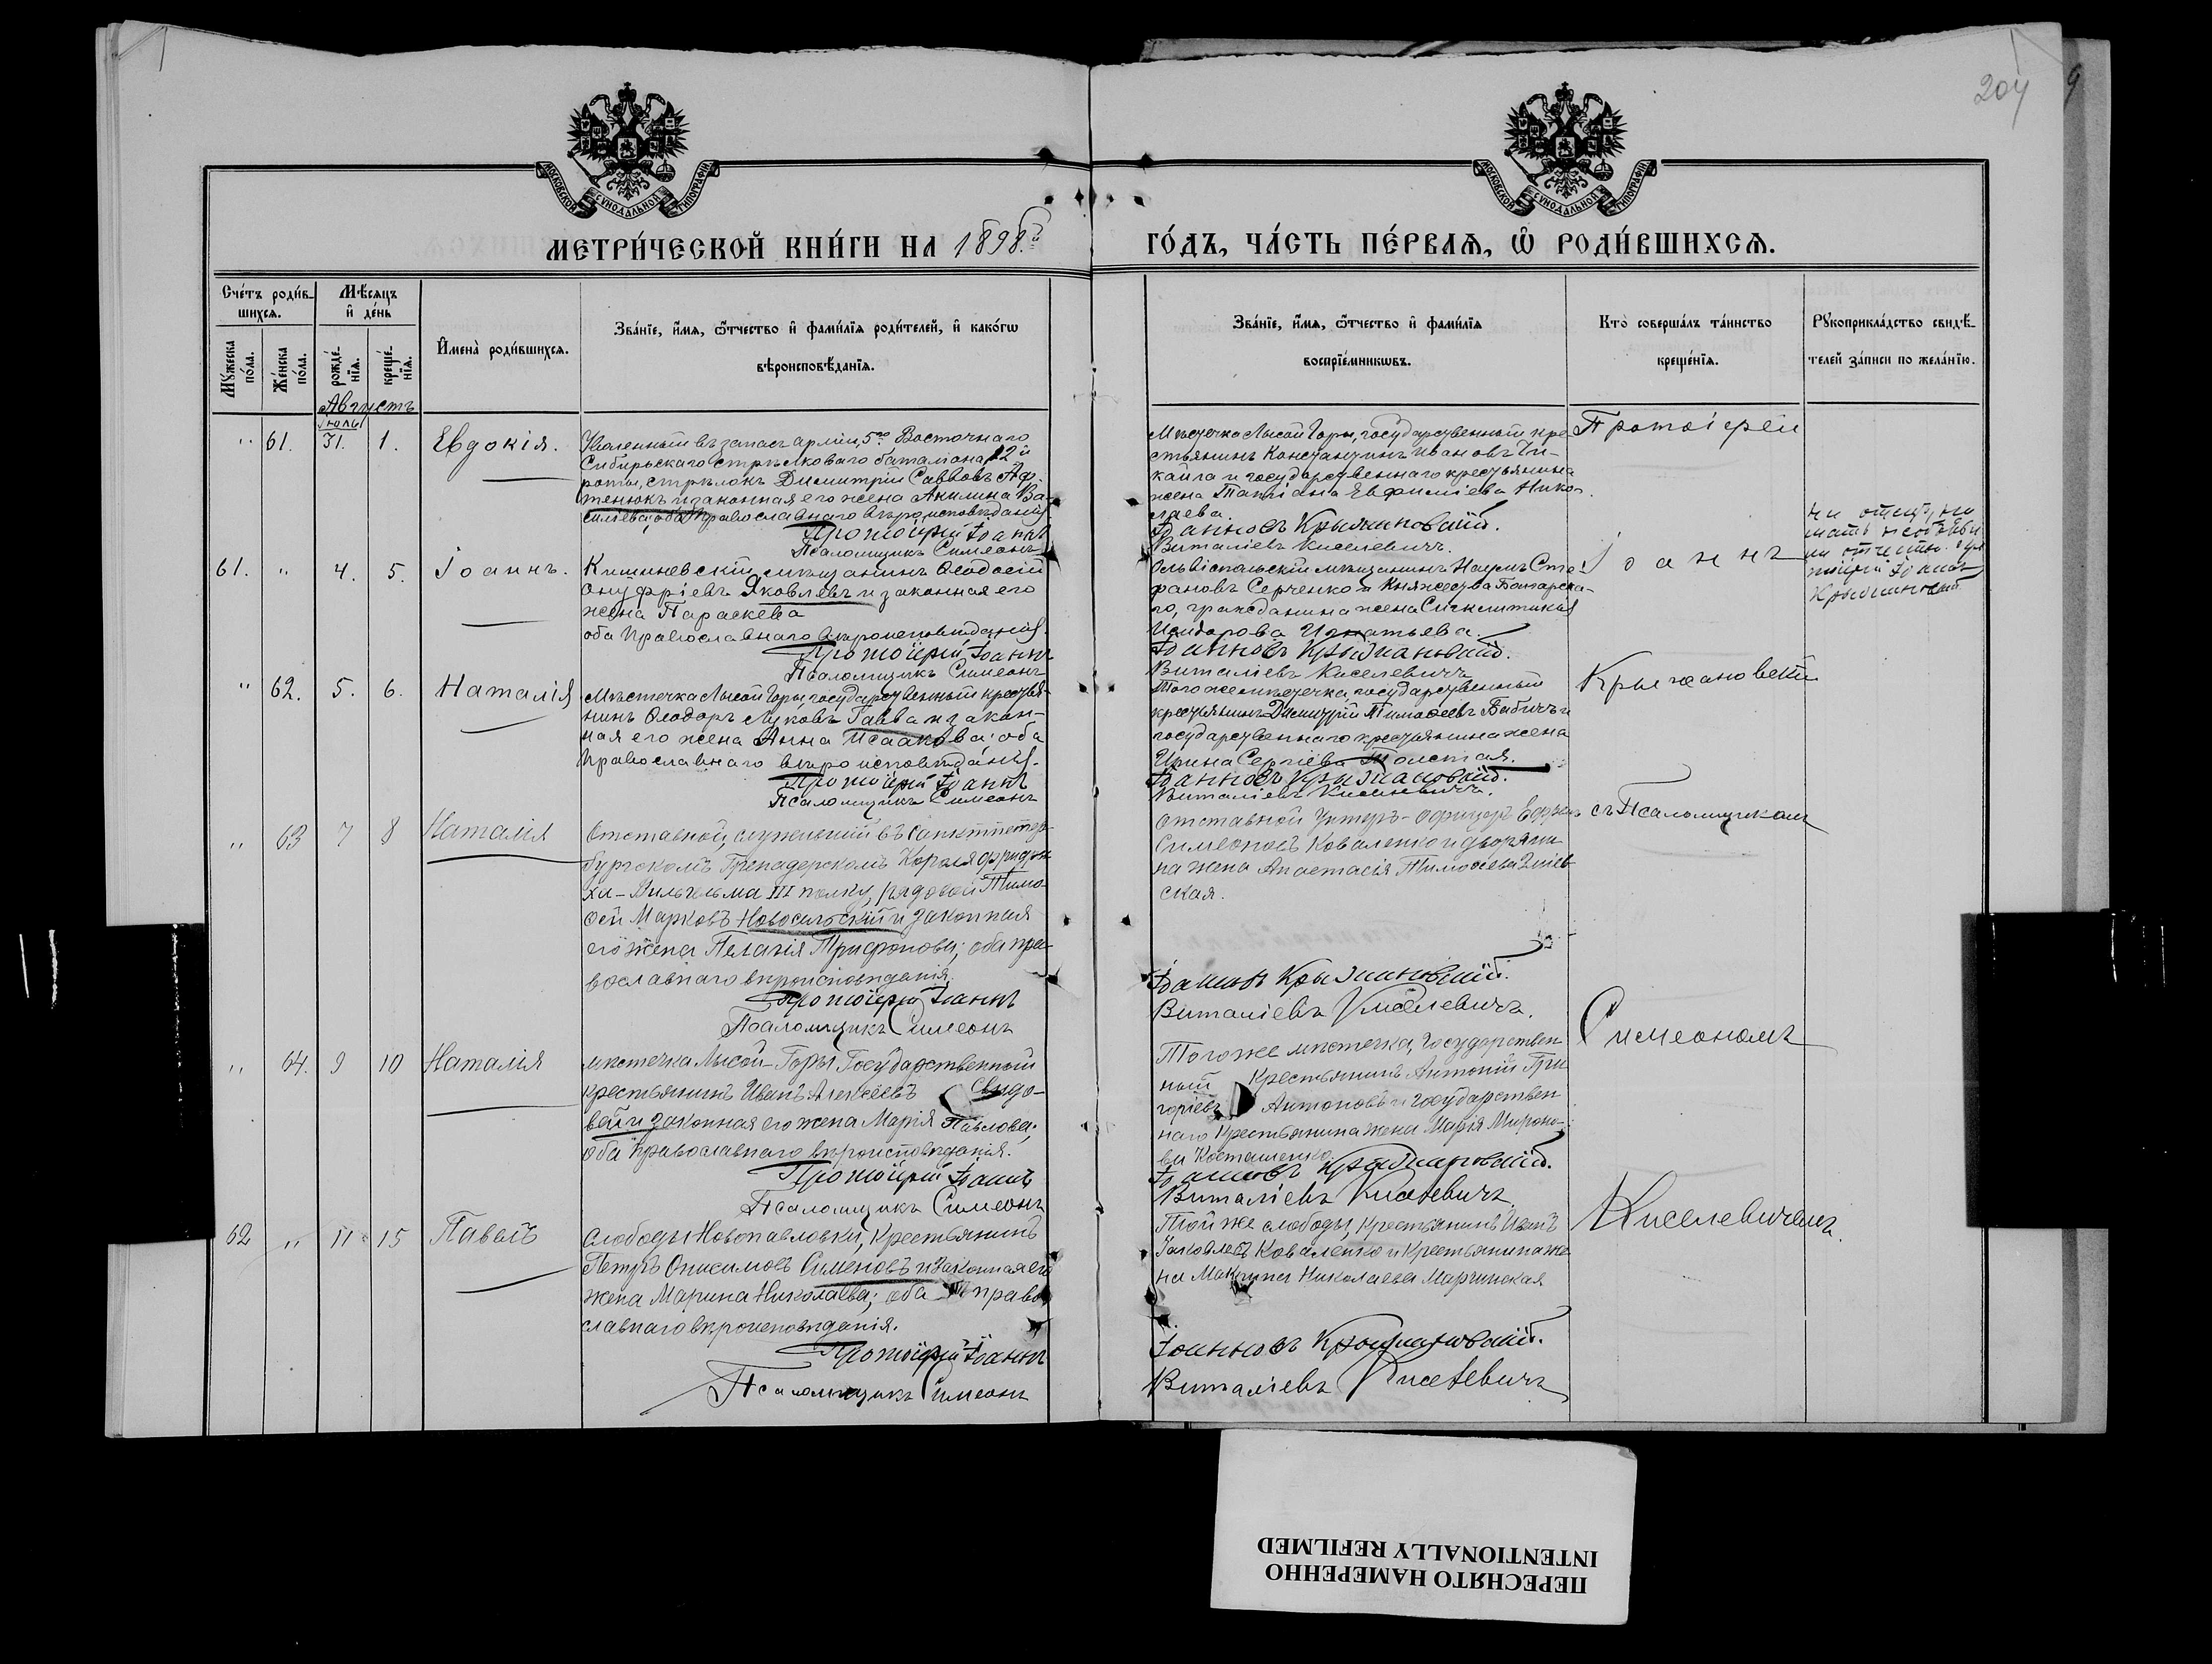 204
9
МОСКОВСКОЙ СѴНОДАЛЬНОЙ ТИПОГРАФІИ
МОСКОВСКОЙ СѴНОДАЛЬНОЙ ТИПОГРАФІИ
МЕТРИ́ЧЕСКОЙ КНИ́ГИ НА 1898й
ГО́ДЪ, ЧА́СТЬ ПЕ́РВАЯ, Ѿ РОДИ́ВШИХСЯ.
Сче́тъ роди́в-
шихся.
Мѣсяцъ
и҆ де́нь
Мꙋжеска
по́ла.
Же́нска
по́ла.
рожде́-
нїя.
креще́-
нїя.
И҆мена̀ роди́вшихся.
Зва́нїе, и҆́мя, ѻ҆́тчество и҆ фами́лїя роди́телей, и҆ како́гѡ
вѣроисповѣ́данїя.
Зва́нїе, и҆́мя, ѻ҆́тчество и҆ фами́лїя
воспрїе́мникѡвъ.
Кто̀ соверша́лъ та́инство
креще́нїя.
Рꙋкоприкла́дство свидѣ́-
телей за́писи по жела́нїю.
Августъ
Іюль
" 61. 31. 1. Евдокія.
Уволенный въ запасъ арміи, 5го Восточнаго
Сибирьскаго стрѣлковаго баталіона, 2й
роты, стрѣлокъ Димитрій Саввовъ
тенюкъ и законная его жена Акилина Ва-
силіева; оба Православнаго вѣроисповѣданія
Протоіерей Іоаннъ
Псаломщикъ Симеонъ
Мѣстечка Лысой Горы, государственный кре-
стьянинъ Константинъ Ивановъ Чи-
кайла и государственнаго крестьянина
жена Татіана Евфиміева Нико-
лаева.
Іоанновъ Крыжановскій.
Виталіевъ Киселевичъ.
Протоіерей
61. " 4. 5. Іоаннъ.
Кишиневскій мѣщанинъ Ѳеодосій
Онуфріевъ Яковлевъ и законная его
жена Параскева
оба Православнаго вѣроисповѣданія.
Протоіерей Іоаннъ
Псаломщикъ Симеонъ
Ольвіопольскій мѣщанинъ Наумъ Сте-
фановъ Серченко и Княжества Болгарска-
го, гражданина жена Синклитикія
Исидорова Игнатьева.
Іоанновъ Крыжановскій.
Виталіевъ Киселевичъ
Іоаннъ
ни отецъ, ни
мать
Іоаннъ
Крыжановскій
" 62. 5. 6. Наталія
Мѣстечка Лысой Горы, государственный крестья-
нинъ Ѳеодоръ Луковъ Гайва и закон-
ная его жена Анна Исаакова: оба
Православнаго вѣроисповѣданія.
Протоіерей Іоаннъ
Псаломщикъ Симеонъ
Того же мѣстечка, государственный
крестьянинъ Димитрій Тимоѳеевъ Бабичъ и
государственнаго крестьянина жена
Ирина Сергіева Толстая.
Іоанновъ Крыжановскій.
Виталіевъ Киселевичъ.
Крыжановскій
" 63 7 8 Наталія
Отставной, служившій въ Санктпетер-
бургскомъ Гренадерскомъ Короля Фридри-
ха-Вильгельма III полку, рядовой Тимо-
ѳей Марковъ Новосельскій и законная
его жена Пелагія Трифонова; оба пра-
вославнаго вѣроисповѣданія.
Протоіерей Іоаннъ
Псаломщикъ Симеонъ
Отставной Унтеръ-офицеръ
Симеоновъ Коваленко и дворяни-
на жена Анастасія Тимоѳеева
ская.
Іоанновъ Крыжановскій.
Виталіевъ Киселевичъ.
съ Псаломщикомъ
" 64. 9 10 Наталія
Мѣстечка Лысой-Горы Государственный
крестьянинъ Иванъ Алексѣевъ
вый и законная его жена Марія Павлова;
оба Православнаго вѣроисповѣданія.
Протоіерей Іоаннъ
Псаломщикъ Симеонъ
Того же мѣстечка, Государствен-
ный Крестьянинъ Антоній Гри-
горіевъ Антоновъ и Государствен-
наго Крестьянина жена Марія Мироно-
ва Косташенко.
Іоанновъ Крыжановскій.
Виталіевъ Киселевичъ
Симеономъ
62 " 11 15 Павелъ
Слободы Новопавловки, Крестьянинъ
Петръ Онисимовъ Сименовъ и законная его
жена Марина Николаева; оба право-
славнаго вѣроисповѣданія.
Протоіерей Іоаннъ
Псаломщикъ Симеонъ
Той же слободы, крестьянинъ Иванъ
Яковлевъ Коваленко и Крестьянина же-
на Макрина Николаева Марчинская
Іоанновъ Крыжановскій.
Виталіевъ Киселевичъ
Киселевичемъ.
ПЕРЕСНЯТО НАМЕРЕННО
INTENTIONALLY REFILMED